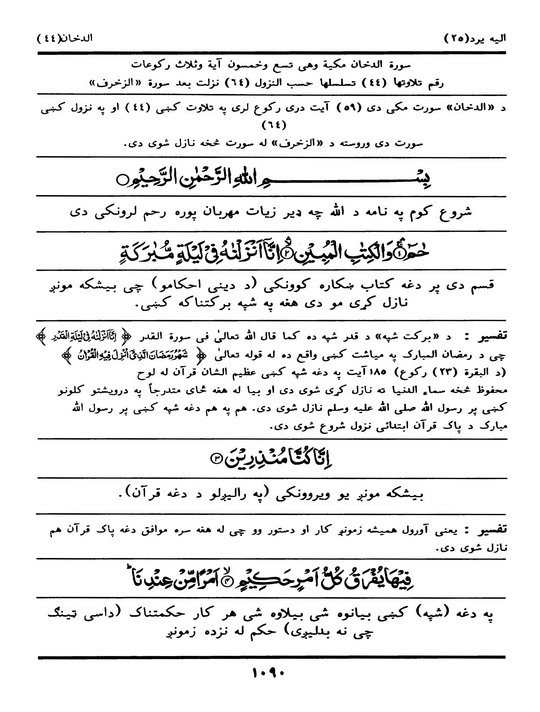 الیه یرد(۲۵) الدخان(٤٤)
سورة الدخان مكية وهى تسع وخمسون آية وثلاث ركوعات
رقم تلاوتها (٤٤) تسلسلها حسب النزول (٦٤) نزلت بعد سورة «الزخرف»
د «الدخان» سورت مکی دی (٥٩) آیت دری رکوع لری په تلاوت کښی (٤٤) او په نزول کښی (٦٤)
سورت دی وروسته د «الزخرف» له سورت څخه نازل شوی دی.
بِسْمِ اللهِ الرَّحْمٰنِ الرَّحِيْمِ
شروع کوم په نامه د الله چه ډیر زیات مهربان پوره رحم لرونکی دی
حٰمۤ ﴿۱﴾ وَالْكِتٰبِ الْمُبِيْنِ ﴿۲﴾ اِنَّاۤ اَنْزَلْنٰهُ فِيْ لَيْلَةٍ مُّبٰرَكَةٍ
قسم دی پر دغه کتاب ښکاره کوونکی (د دینی احکامو) چی بیشکه مونږ
نازل کړی مو دی هغه په شپه برکتناکه کښی.
تفسیر : د «برکت شپه» د قدر شپه ده کما قال الله تعالیٰ فی سورة القدر ﴿ اِنَّاۤ اَنْزَلْنٰهُ فِيْ لَيْلَةِ الْقَدْرِ ﴾
چی د رمضان المبارک په میاشت کښی واقع ده له قوله تعالیٰ ﴿ شَهْرُ رَمَضَانَ الَّذِيْۤ اُنْزِلَ فِيْهِ الْقُرْاٰنُ ﴾
(د البقرة (۲۳) رکوع) ۱۸۵ آیت په دغه شپه کښی عظیم الشان قرآن له لوح
محفوظ څخه سماء الدنیا ته نازل کړی شوی دی او بیا له هغه ځای متدرجاً په درویشتو کلونو
کښی پر رسول الله صلی الله علیه وسلم نازل شوی دی. هم په هم دغه شپه کښی پر رسول الله
مبارک د پاک قرآن ابتدائی نزول شروع شوی دی.
اِنَّا كُنَّا مُنْذِرِيْنَ ﴿۳﴾
بیشکه مونږ یو ویروونکی (په رالیږلو د دغه قرآن).
تفسیر : یعنی آورول همیشه زمونږ کار او دستور وو چی له هغه سره موافق دغه پاک قرآن هم
نازل شوی دی.
فِيْهَا يُفْرَقُ كُلُّ اَمْرٍ حَكِيْمٍ ﴿۴﴾ اَمْرًا مِّنْ عِنْدِنَا
په دغه (شپه) کښی بیانوه شی بیلاوه شی هر کار حکمتناک (داسی ټینګ
چی نه بدلیږی) حکم له نزده زمونږ
۱۰۹۰